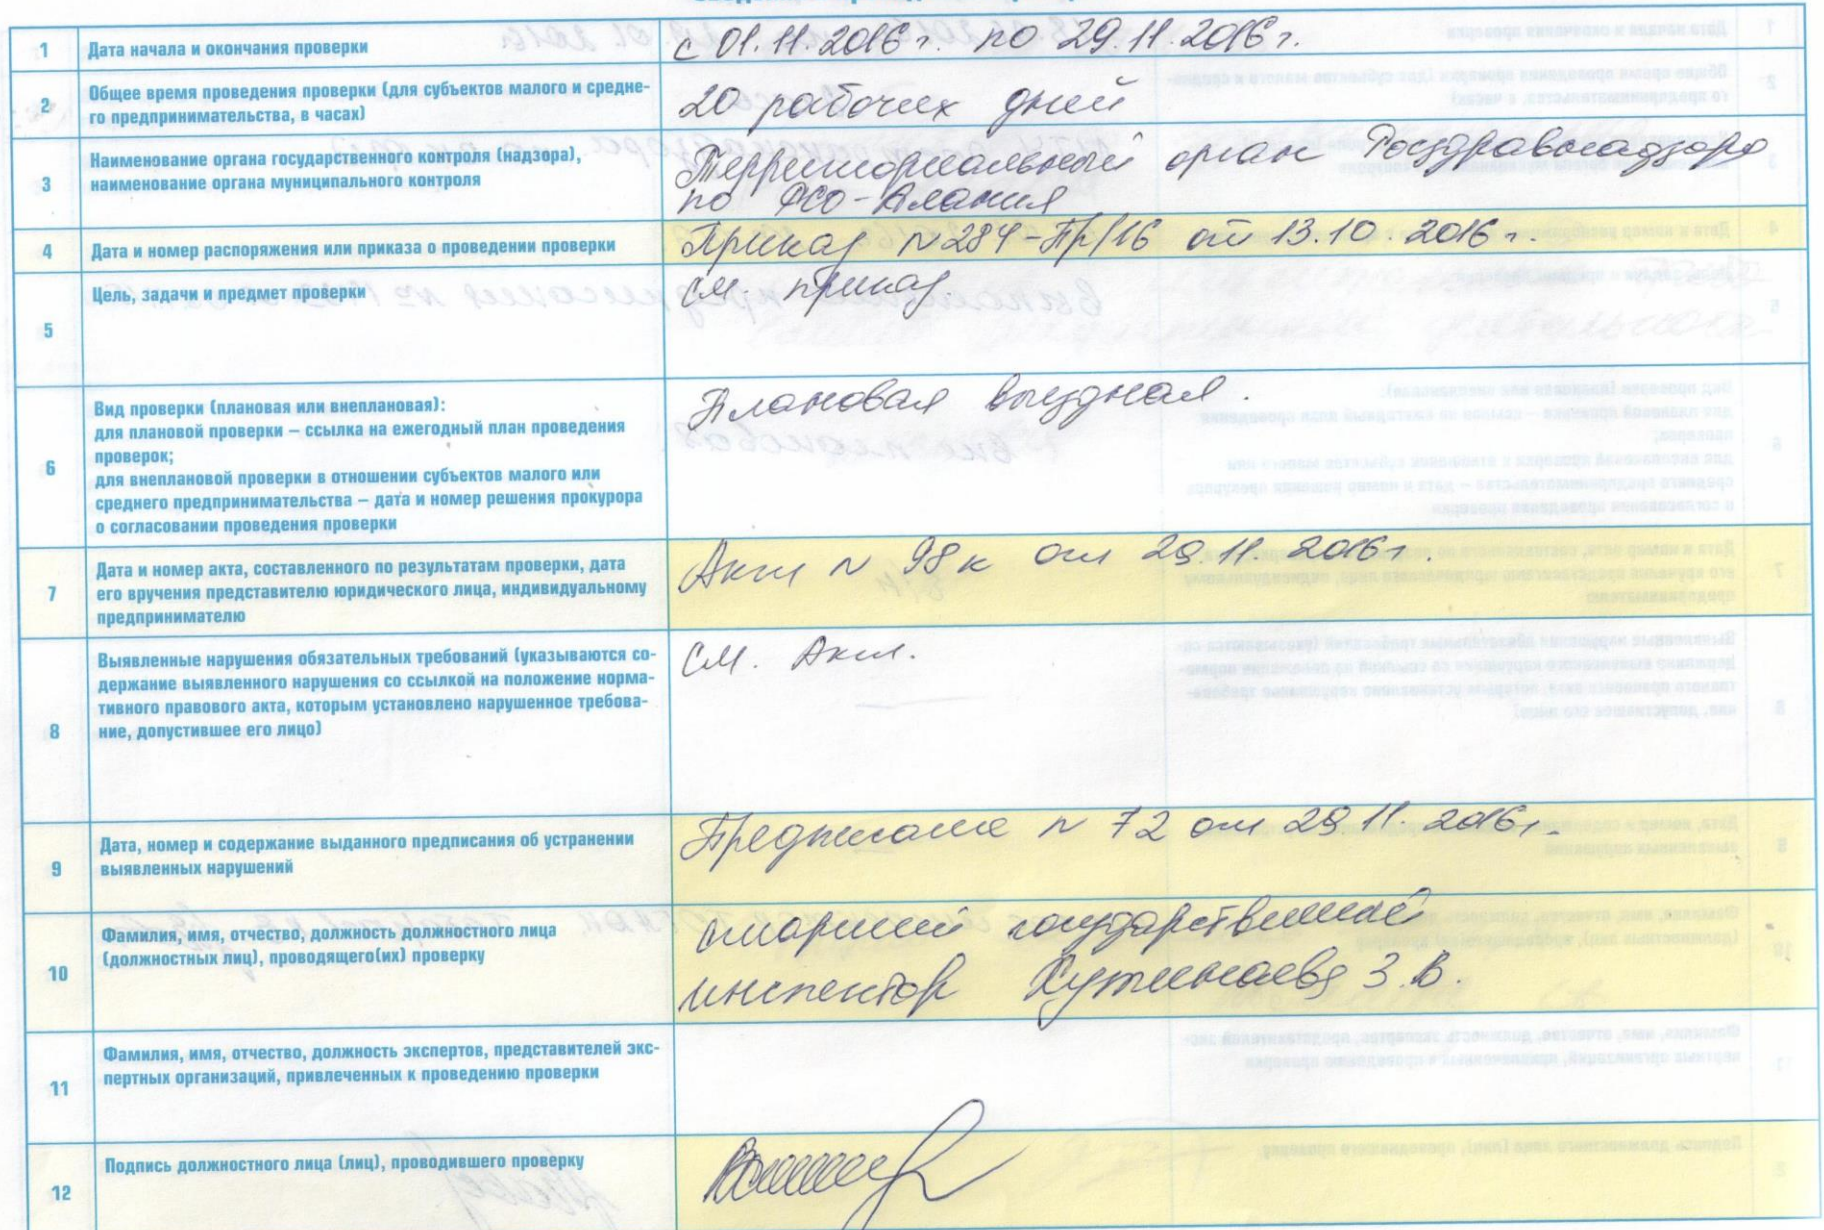 1 Дата начала и окончания проверки с 01.11.2016г. по 29.11.2016г.
2 Общее время проведения проверки (для субъектов малого и средне-
го предпринимательства, в часах)
20 рабочих дней
3 Наименование органа государственного контроля (надзора),
наименование органа муниципального контроля
Территориальный орган Росздравнадзора
по РСО-Алания
4 Дата и номер распоряжения или приказа о проведении проверки Приказ N284-Пр/16 от 13.10.2016г.
5 Цель, задачи и предмет проверки см. приказ
6 Вид проверки (плановая или внеплановая):
для плановой проверки – ссылка на ежегодный план проведения
проверок;
для внеплановой проверки в отношении субъектов малого или
среднего предпринимательства – дата и номер решения прокурора
о согласовании проведения проверки
Плановая выездная.
7 Дата и номер акта, составленного по результатам проверки, дата
его вручения представителю юридического лица, индивидуальному
предпринимателю
Акт N 98к от 29.11.2016г.
8 Выявленные нарушения обязательных требований (указываются со-
держание выявленного нарушения со ссылкой на положение норма-
тивного правового акта, которым установлено нарушенное требова-
ние, допустившее его лицо)
см. Акт.
9 Дата, номер и содержание выданного предписания об устранении
выявленных нарушений
Предписание N 72 от 29.11.2016г.
10 Фамилия, имя, отчество, должность должностного лица
(должностных лиц), проводящего(их) проверку
старший государственный
инспектор З.В.
11 Фамилия, имя, отчество, должность экспертов, представителей экс-
пертных организаций, привлеченных к проведению проверки
12 Подпись должностного лица (лиц), проводившего проверку